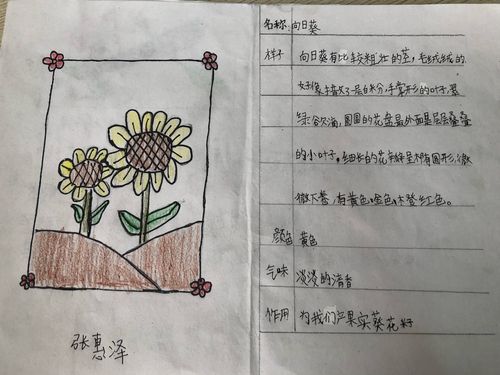 名称 向日葵
样子 向日葵有比较粗壮的茎，毛绒绒的
好像撒了一层白米分，手掌形的叶子，翠
绿欲滴，圆圆的花盘最外面是层层叠叠
的小叶子，细长的花瓣呈椭圆形，微
微下卷，有黄色、金色、木登红色。
颜色 黄色
气味 淡淡的清香
作用 为我们产果实葵花籽
张惠泽